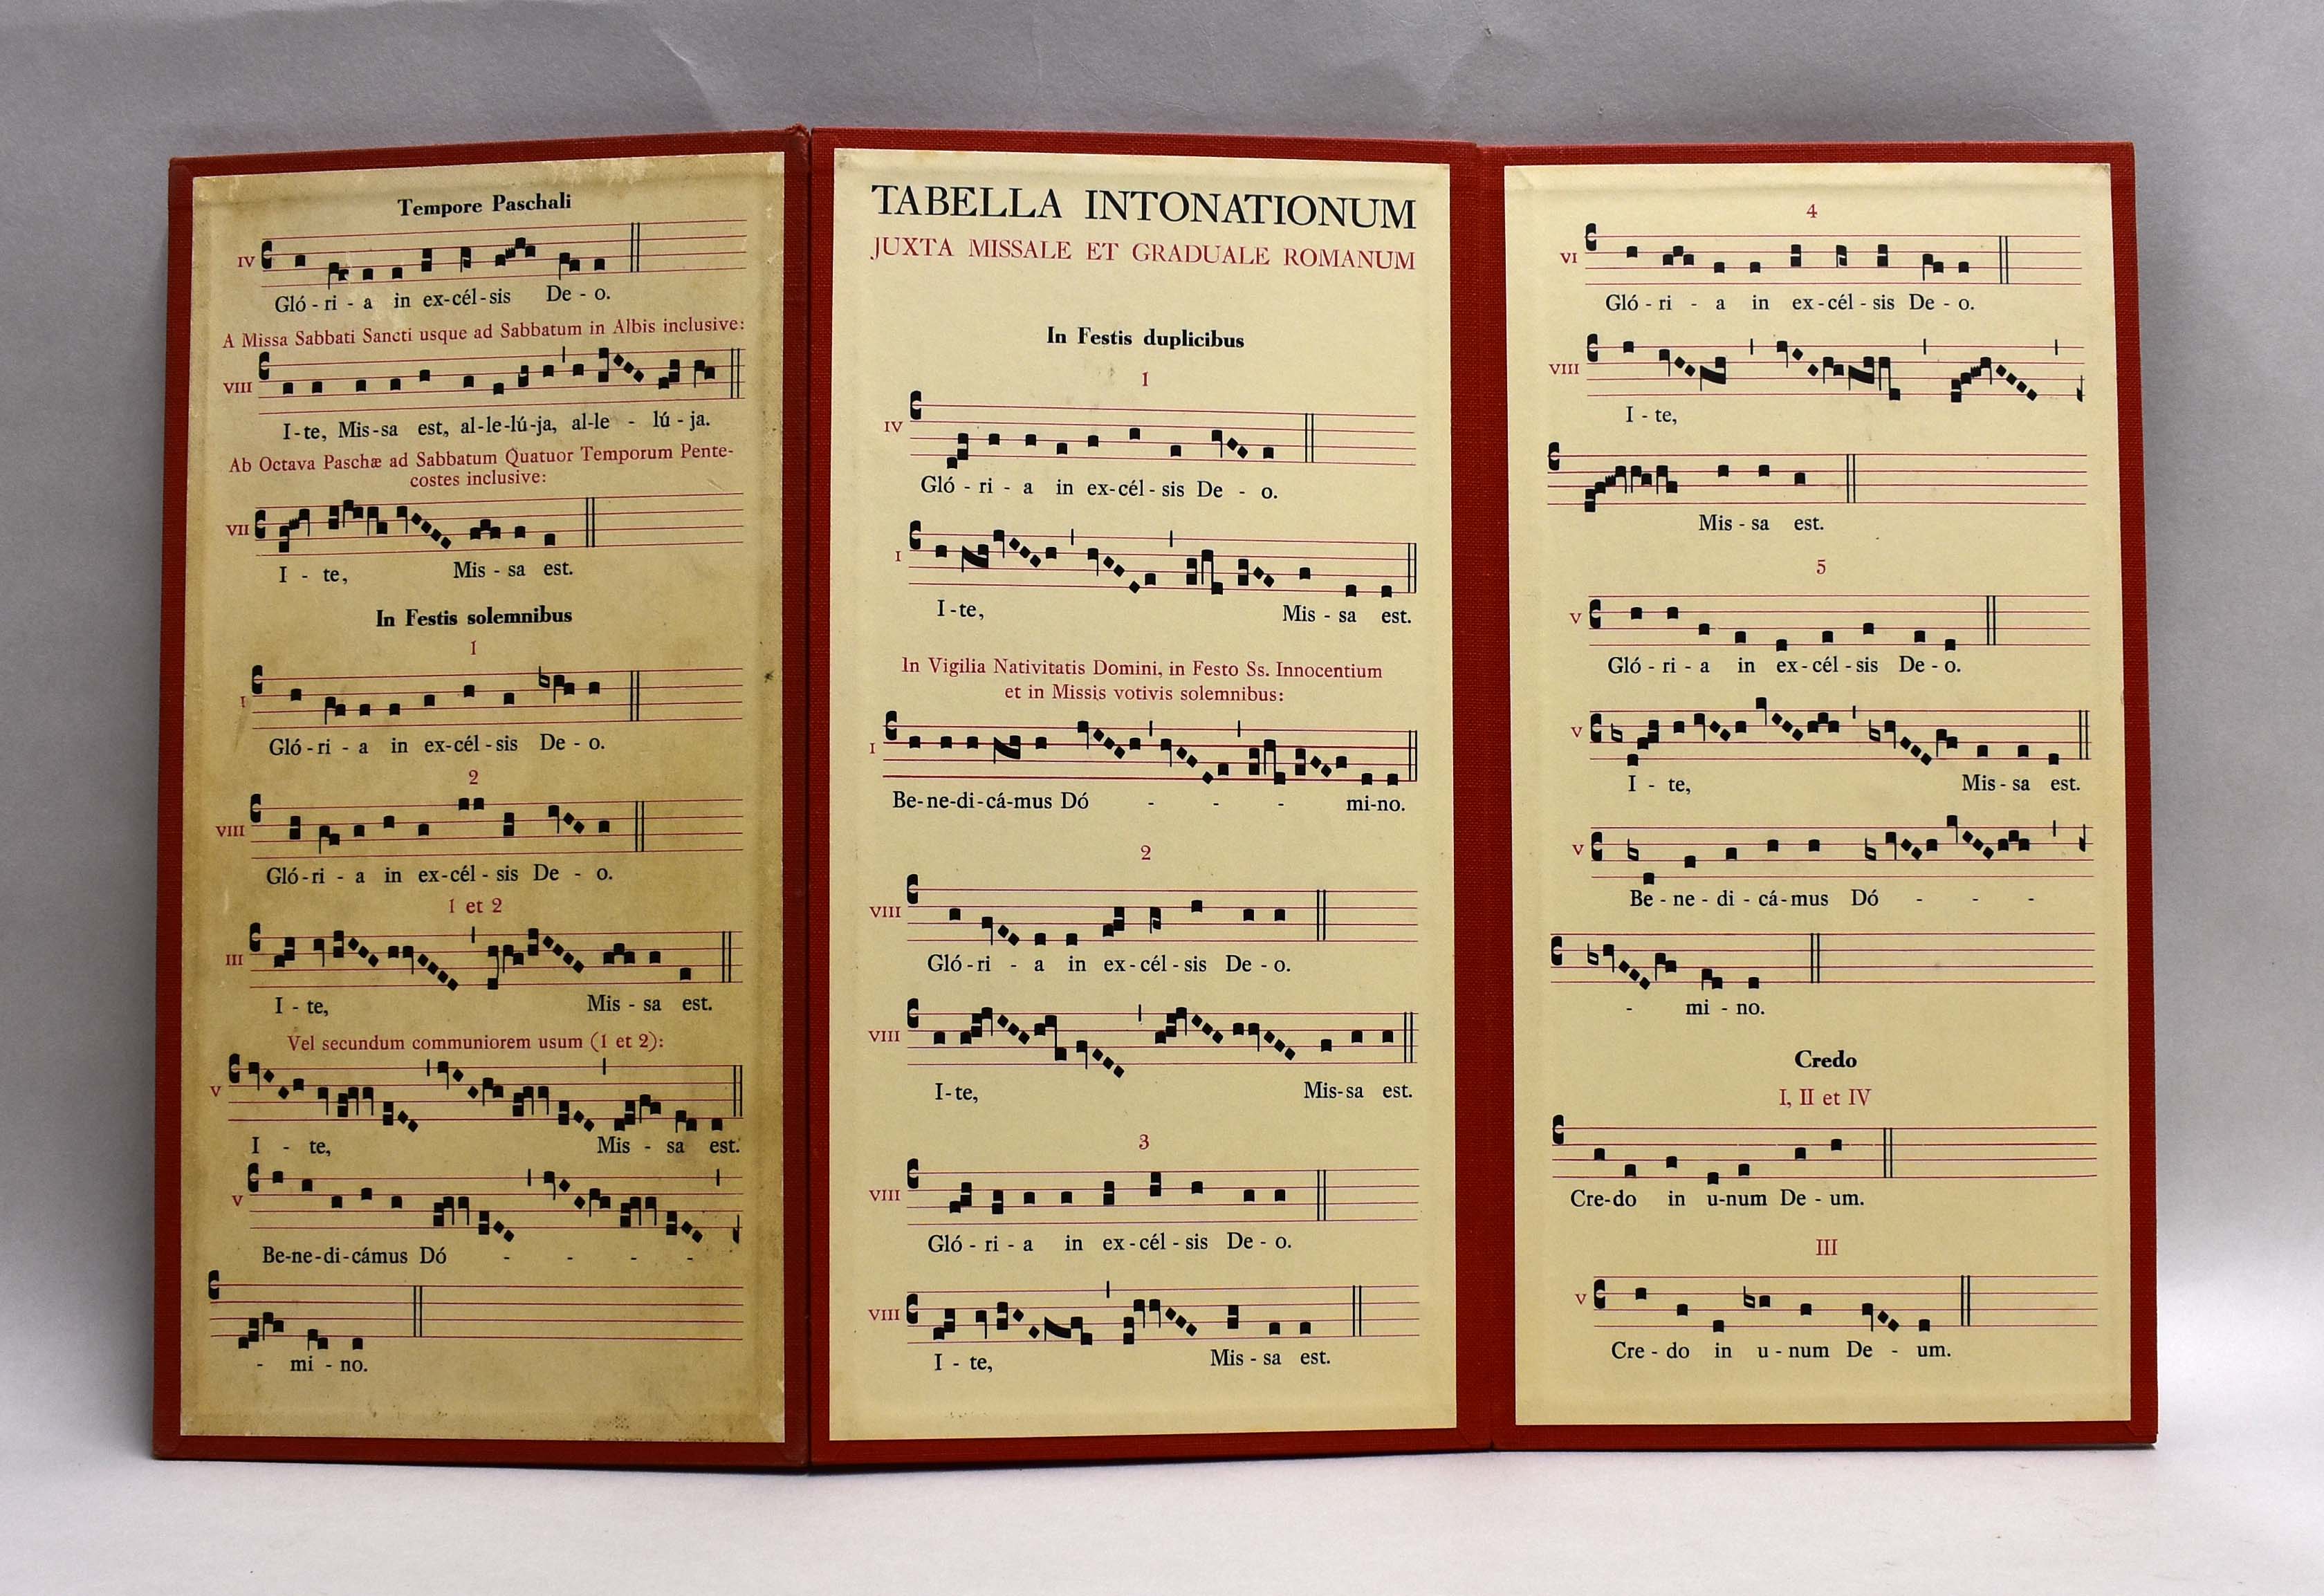 Tempore Paschali
IV
Gló - ri - a in ex-cél-sis De - o.
A Missa Sabbati Sancti usque ad Sabbatum in Albis inclusive:
VIII
I-te, Mis-sa est, al-le-lú-ja, al-le - lú-ja.
Ab Octava Paschæ ad Sabbatum Quatuor Temporum Pente-
costes inclusive:
VII
I - te, Mis - sa est.
In Festis solemnibus
1
I
Gló-ri - a in ex-cél-sis De - o.
2
VIII
Gló-ri - a in ex-cél-sis De - o.
1 et 2
III
I - te, Mis - sa est.
Vel secundum communiorem usum (1 et 2):
V
I - te, Mis - sa est.
V
Be-ne-di-cámus Dó - - - -
- mi - no.
TABELLA INTONATIONUM
JUXTA MISSALE ET GRADUALE ROMANUM
In Festis duplicibus
1
IV
Gló - ri - a in ex-cél-sis De - o.
I
I-te, Mis - sa est.
In Vigilia Nativitatis Domini, in Festo Ss. Innocentium
et in Missis votivis solemnibus:
I
Be-ne-di-cá-mus Dó - - - mi-no.
2
VIII
Gló-ri - a in ex-cél-sis De - o.
VIII
I-te, Mis-sa est.
3
VIII
Gló - ri - a in ex-cél-sis De - o.
VIII
I - te, Mis - sa est.
4
VI
Gló - ri - a in ex-cél-sis De - o.
VIII
I - te,
Mis - sa est.
5
V
Gló - ri - a in ex-cél-sis De - o.
V
I - te, Mis - sa est.
V
Be - ne - di - cá-mus Dó - - -
- mi - no.
Credo
I, II et IV
Cre-do in u-num De - um.
III
V
Cre - do in u - num De - um.